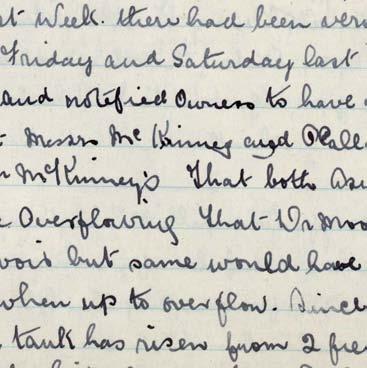 st Week. there had been very
Friday and Saturday last
and notefied Owners to have
Messrs McKinney and
McKinney's That both
Overflowing That Dr Moo
voir but same would have
when up to overflow. Since
tank has risen from 2 fee